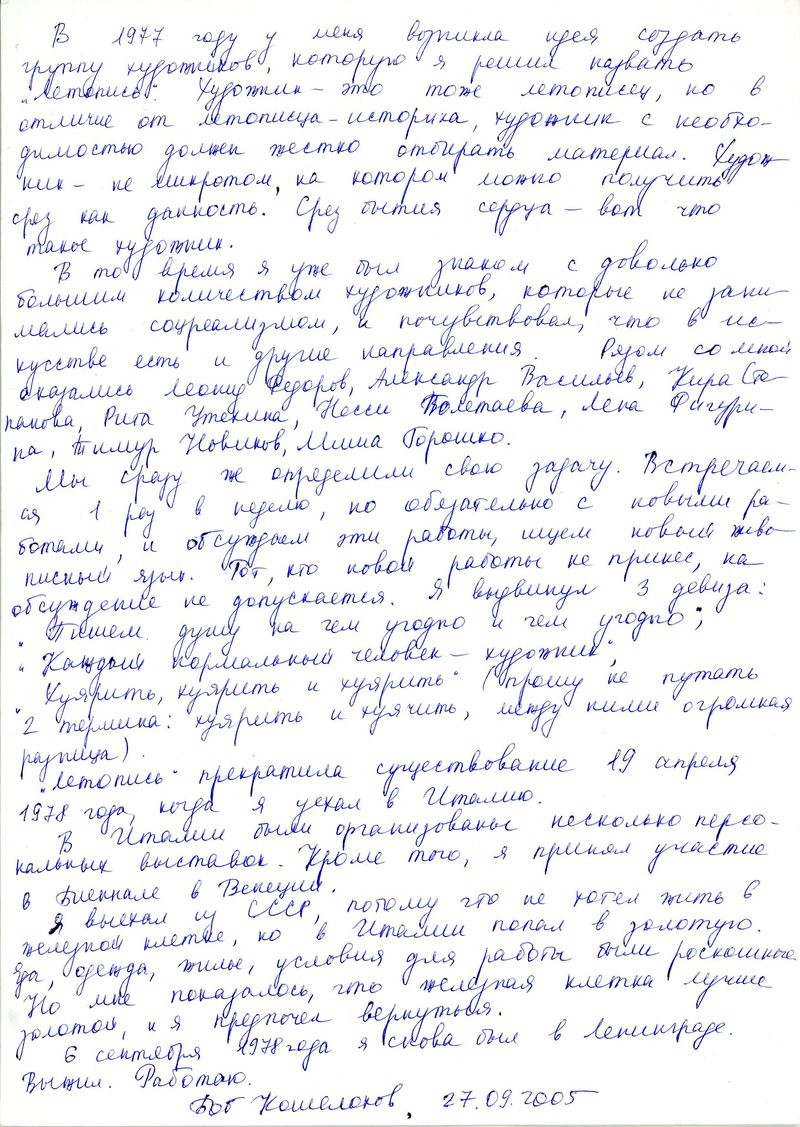 В 1977 году у меня возникла идея создать
группу художников, которую я решил назвать
"Летопись". Художник – это тоже летописец, но в
отличие от летописца-историка, художник с необхо-
димостью должен жестко отбирать материал. Худож-
ник – не микротом, на котором можно получить
срез как данность. Срез бытия сердца – вот что
такое художник.
В то время я уже был знаком с довольно
большим количеством художников, которые не зани-
мались соцреализмом, и почувствовал, что в ис-
кусстве есть и другие направления. Рядом со мной
оказались Леонид Федоров, Александр Васильев, Кира Сте-
панова, Рита Утекина, Несси Полетаева, Лена Фигури-
на, Тимур Новиков, Миша Горошко.
Мы сразу же определили свою задачу. Встречаем-
ся 1 раз в неделю, но обязательно с новыми ра-
ботами, и обсуждаем эти работы, ищем новый живо-
писный язык. Тот, кто новой работы не принес, на
обсуждение не допускается. Я выдвинул 3 девиза:
"Пишем душу на чем угодно и чем угодно",
"Каждый нормальный человек – художник",
"Хуярить, хуярить и хуярить" (прошу не путать
2 термина: хуярить и хуячить, между ними огромная
разница).
"Летопись" прекратила существование 19 апреля
1978 года, когда я уехал в Италию.
В Италии были организованы несколько персо-
нальных выставок. Кроме того, я принял участие
в Биеннале в Венеции.
Я выехал из СССР, потому что не хотел жить в
железной клетке, но в Италии попал в золотую.
Еда, одежда, жилье, условия для работы были роскошные.
Но мне показалось, что железная клетка лучше
золотой, и я предпочел вернуться.
6 сентября 1978 года я снова был в Ленинграде.
Выжил. Работаю.
Боб Кошелохов, 27.09.2005